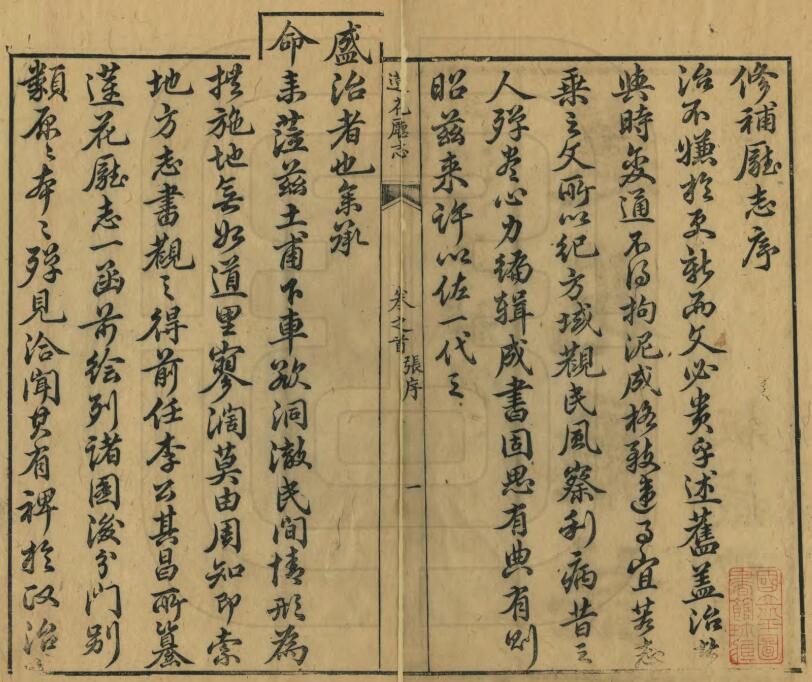 修補廳志序
治不嫌於更新而文必貴乎述舊盖治
與時變通不得拘泥成格致違事宜若志
乗之文所以紀方域觀民風察利病昔之
人殫卷心力編輯成書固思有典有則
昭兹来許以佐一代之
蓮花廳志
卷之首
張序
一
盛治者也某承
命来蒞兹土甫下車欲洞澈民间情形為
措施地無如道里寥濶莫由周知即索
地方志書觀之得前任李公其昌所纂
蓮花廳志一函前绘列诸圖後分门别
類原原本本殫見洽聞其有裨於政治